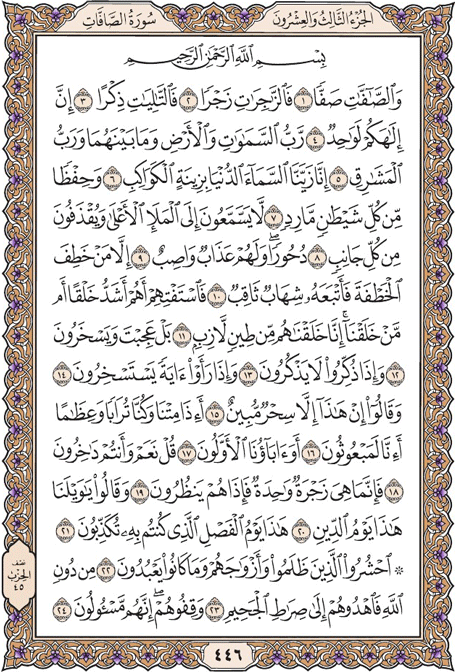 الجُزْءُ الثَّالِثُ وَالعِشْرُونَ
سُورَةُ الصَّافَاتِ
بِسْمِ اللَّهِ الرَّحْمَٰنِ الرَّحِيمِ
وَالصَّٰٓفَّٰتِ صَفًّا ١ فَالزَّٰجِرَٰتِ زَجْرًا ٢ فَالتَّٰلِيَٰتِ ذِكْرًا ٣ إِنَّ
إِلَٰهَكُمْ لَوَٰحِدٌ ٤ رَّبُّ السَّمَٰوَٰتِ وَالْأَرْضِ وَمَا بَيْنَهُمَا وَرَبُّ
الْمَشَٰرِقِ ٥ إِنَّا زَيَّنَّا السَّمَآءَ الدُّنْيَا بِزِينَةٍ الْكَوَاكِبِ ٦ وَحِفْظًا
مِّن كُلِّ شَيْطَٰنٍ مَّارِدٍ ٧ لَّا يَسَّمَّعُونَ إِلَى الْمَلَإِ الْأَعْلَىٰ وَيُقْذَفُونَ
مِن كُلِّ جَانِبٍ ٨ دُحُورًا ۖ وَلَهُمْ عَذَابٌ وَاصِبٌ ٩ إِلَّا مَنْ خَطِفَ
الْخَطْفَةَ فَأَتْبَعَهُۥ شِهَابٌ ثَاقِبٌ ١٠ فَاسْتَفْتِهِمْ أَهُمْ أَشَدُّ خَلْقًا أَم
مَّنْ خَلَقْنَآ ۚ إِنَّا خَلَقْنَٰهُم مِّن طِينٍ لَّازِبٍۭ ١١ بَلْ عَجِبْتَ وَيَسْخَرُونَ
١٢ وَإِذَا ذُكِّرُوا۟ لَا يَذْكُرُونَ ١٣ وَإِذَا رَأَوْا۟ ءَايَةً يَسْتَسْخِرُونَ ١٤
وَقَالُوٓا۟ إِنْ هَٰذَآ إِلَّا سِحْرٌ مُّبِينٌ ١٥ أَءِذَا مِتْنَا وَكُنَّا تُرَابًا وَعِظَٰمًا
أَءِنَّا لَمَبْعُوثُونَ ١٦ أَوَءَابَآؤُنَا الْأَوَّلُونَ ١٧ قُلْ نَعَمْ وَأَنتُمْ دَٰخِرُونَ
١٨ فَإِنَّمَا هِىَ زَجْرَةٌ وَٰحِدَةٌ فَإِذَا هُمْ يَنظُرُونَ ١٩ وَقَالُوا۟ يَٰوَيْلَنَا
هَٰذَا يَوْمُ الدِّينِ ٢٠ هَٰذَا يَوْمُ الْفَصْلِ الَّذِى كُنتُم بِهِۦ تُكَذِّبُونَ ٢١
۞ احْشُرُوا۟ الَّذِينَ ظَلَمُوا۟ وَأَزْوَٰجَهُمْ وَمَا كَانُوا۟ يَعْبُدُونَ ٢٢ مِن دُونِ
اللَّهِ فَاهْدُوهُمْ إِلَىٰ صِرَٰطِ الْجَحِيمِ ٢٣ وَقِفُوهُمْ ۖ إِنَّهُم مَّسْـُٔولُونَ ٢٤
نصف
الحزب
٤٥
٤٤٦